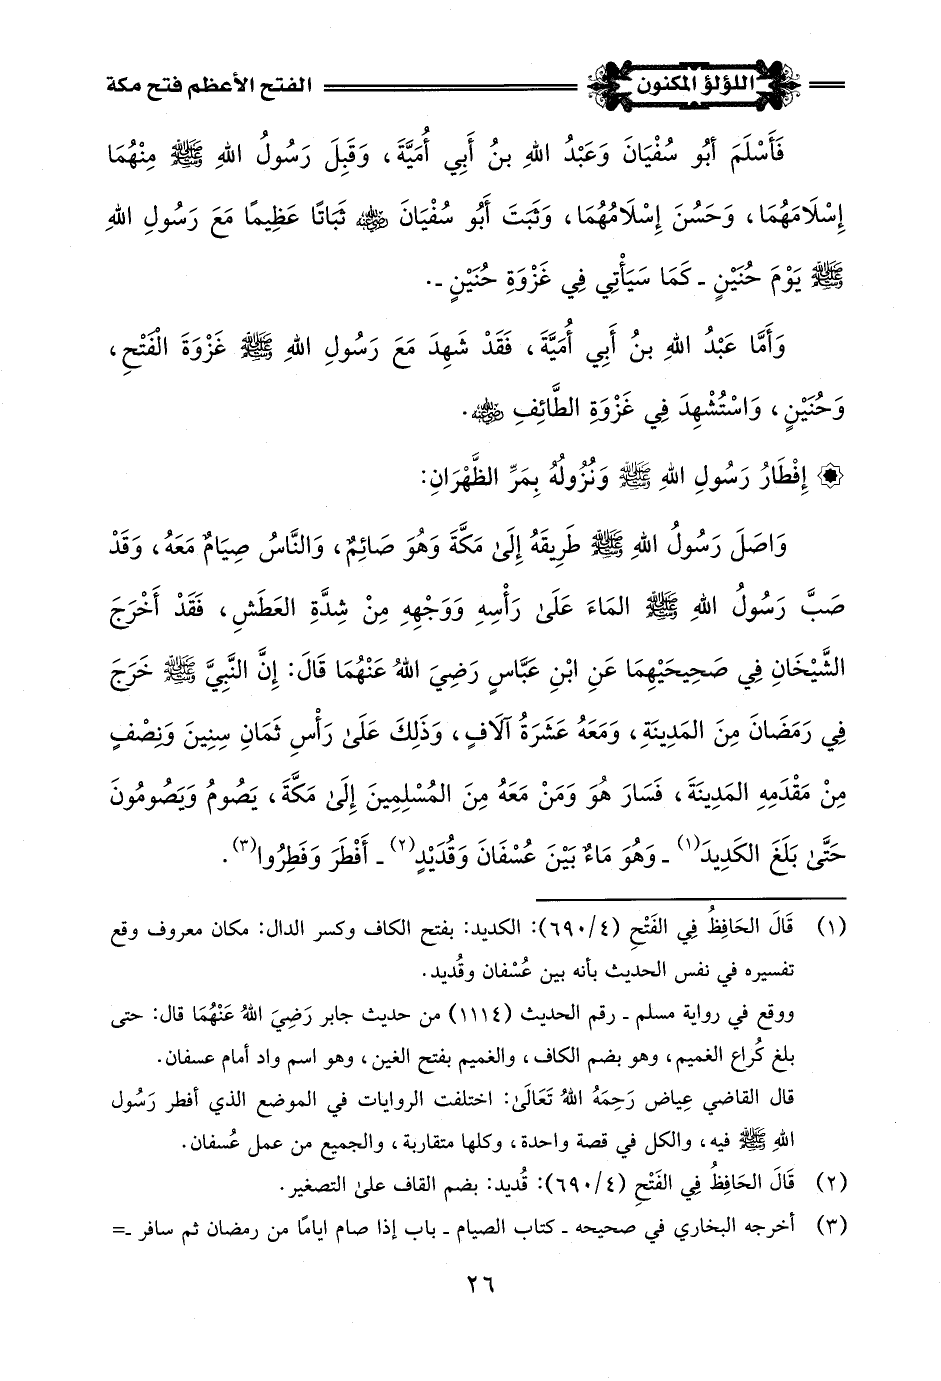 اللؤلؤ المكنون الفتح الأعظم فتح مكة
فَأَسْلَمَ أَبُو سُفْيَانَ وَعَبْدُ اللهِ بنُ أَبِي أُمَيَّةَ، وَقَبِلَ رَسُولُ اللهِ ﷺ مِنْهُمَا
إِسْلَامَهُمَا، وَحَسُنَ إِسْلَامُهُمَا، وَثَبَتَ أَبُو سُفْيَانَ رضي الله عنه ثَبَاتًا عَظِيمًا مَعَ رَسُولِ اللهِ
ﷺ يَوْمَ حُنَيْنٍ ـ كَمَا سَيَأْتِي فِي غَزْوَةِ حُنَيْنٍ ـ.
وَأَمَّا عَبْدُ اللهِ بنُ أَبِي أُمَيَّةَ، فَقَدْ شَهِدَ مَعَ رَسُولِ اللهِ ﷺ غَزْوَةَ الْفَتْحِ،
وَحُنَيْنٍ، وَاسْتُشْهِدَ فِي غَزْوَةِ الطَّائِفِ رضي الله عنه.
إِفْطَارُ رَسُولِ اللهِ ﷺ وَنُزُولُهُ بِمَرِّ الظَّهْرَانِ:
وَاصَلَ رَسُولُ اللهِ ﷺ طَرِيقَهُ إِلَىٰ مَكَّةَ وَهُوَ صَائِمٌ، وَالنَّاسُ صِيَامٌ مَعَهُ، وَقَدْ
صَبَّ رَسُولُ اللهِ ﷺ المَاءَ عَلَىٰ رَأْسِهِ وَوَجْهِهِ مِنْ شِدَّةِ العَطَشِ، فَقَدْ أَخْرَجَ
الشَّيْخَانِ فِي صَحِيحَيْهِمَا عَنِ ابْنِ عَبَّاسٍ رَضِيَ اللهُ عَنْهُمَا قَالَ: إِنَّ النَّبِيَّ ﷺ خَرَجَ
فِي رَمَضَانَ مِنَ المَدِينَةِ، وَمَعَهُ عَشَرَةُ آلَافٍ، وَذَلِكَ عَلَىٰ رَأْسِ ثَمَانِ سِنِينَ وَنِصْفٍ
مِنْ مَقْدَمِهِ المَدِينَةَ، فَسَارَ هُوَ وَمَنْ مَعَهُ مِنَ المُسْلِمِينَ إِلَىٰ مَكَّةَ، يَصُومُ وَيَصُومُونَ
حَتَّىٰ بَلَغَ الكَدِيدَ(١) ـ وَهُوَ مَاءٌ بَيْنَ عُسْفَانَ وَقُدَيْدٍ(٢) ـ أَفْطَرَ وَفَطِرُوا(٣).
(١) قَالَ الحَافِظُ فِي الفَتْحِ (٦٩٠/٤): الكديد: بفتح الكاف وكسر الدال: مكان معروف وقع
تفسيره في نفس الحديث بأنه بين عُسْفان وقُديد.
ووقع في رواية مسلم ـ رقم الحديث (١١١٤) من حديث جابر رَضِيَ اللهُ عَنْهُمَا قال: حتى
بلغ كُراع الغميم، وهو بضم الكاف، والغميم بفتح الغين، وهو اسم واد أمام عسفان.
قال القاضي عِياض رَحِمَهُ اللهُ تَعَالَىٰ: اختلفت الروايات في الموضع الذي أفطر رَسُول
اللهِ ﷺ فيه، والكل في قصة واحدة، وكلها متقاربة، والجميع من عمل عُسفان.
(٢) قَالَ الحَافِظُ فِي الفَتْحِ (٦٩٠/٤): قُديد: بضم القاف علىٰ التصغير.
(٣) أخرجه البخاري في صحيحه ـ كتاب الصيام ـ باب إذا صام ايامًا من رمضان ثم سافر ـ=
٢٦